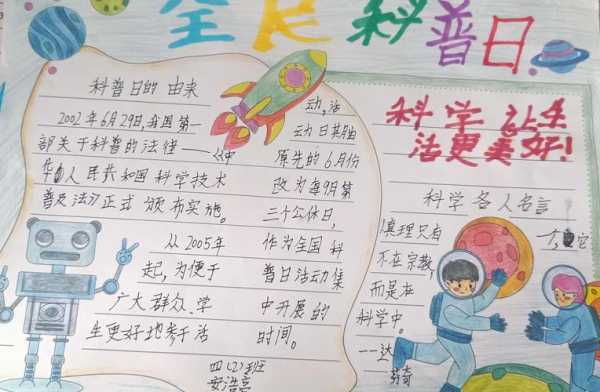 全民科普日
科普日的由来
2002年6月29日,我国第一
部关于科普的法律——《中
华人民共和国科学技术
普及法》正式颁布实施。
从2005年
起,为便于
广大群众、学
生更好地参于活
动,活
动日其期由
原先的6月份
改为每9月第
三个公休日,
作为全国科
普日活动集
中开展的
时间。
四(2)班
安浩亮
科学让生
活更美好!
科学名人名言
真理只有一个,它
不在宗教,
而是在
科学中。
——达
芬奇